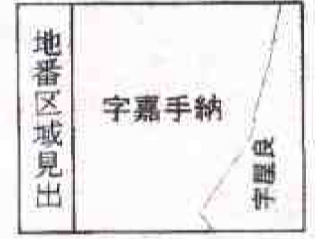 地番区域見出
字嘉手納
字屋良